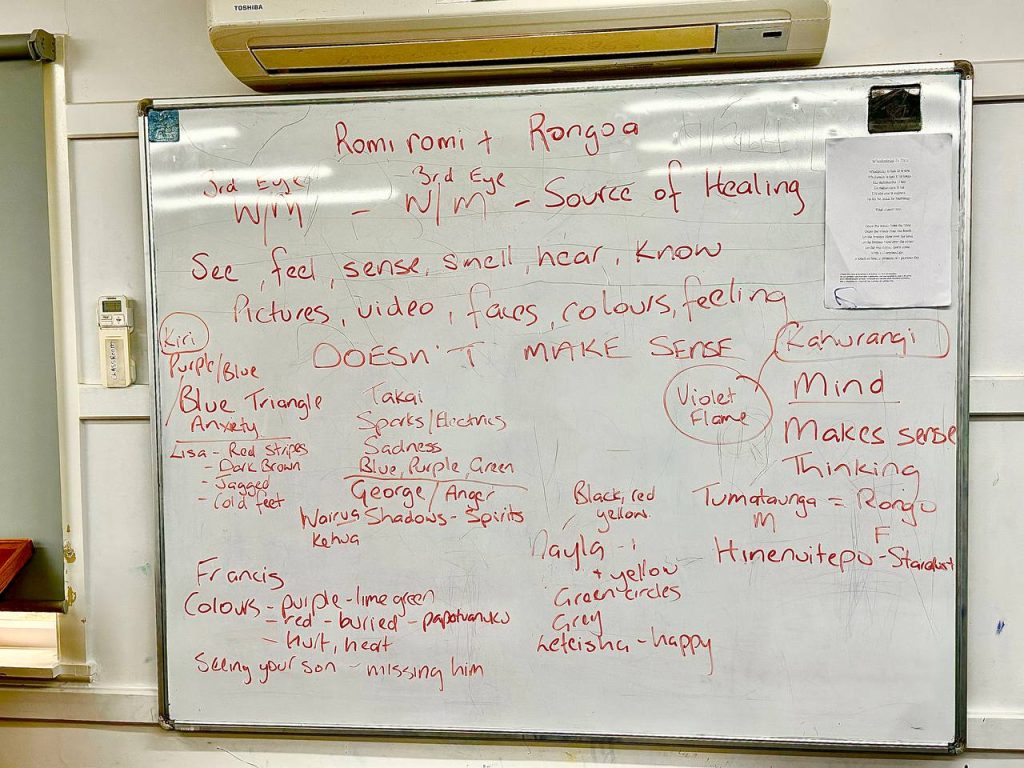 TOSHIBA
Romiromi + Rongoa
3rd Eye 3rd Eye
W/M - W/M - Source of Healing
See, feel, sense, smell, hear, know
Pictures, video, faces, colours, feeling
DOESN'T MAKE SENSE
Kiri
Purple/Blue
Blue Triangle
Anxiety
Lisa - Red Stripes
- Dark Brown
- Jagged
- Cold feet
Takai
Sparks/Electrics
Sadness
Blue, Purple, Green
George/Anger
Wairua Shadows - Spirits
Kehua
Francis
Colours - purple - lime green
- red - buried - papatuanuku
- hurt, heart
Seeing your son - missing him
Black, red
yellow
Nayla -
+ yellow
Green circles
Grey
Leteisha - happy
Kahurangi
Violet
Flame
Mind
Makes sense
Thinking
Tumataunga = Rongo
M
F
Hinenuitepo - Stardust
CLASSROOM